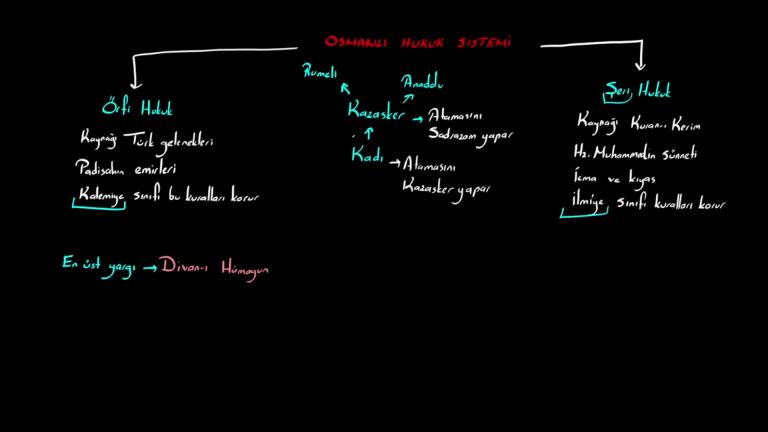 OSMANLI HUKUK SİSTEMİ
Örfi Hukuk
Kaynağı Türk gelenekleri
Padişahın emirleri
Kalemiye sınıfı bu kuralları korur
Rumeli
Anadolu
Kazasker → Atamasını
Sadrazam yapar
Kadı → Atamasını
Kazasker yapar
Şeri Hukuk
Kaynağı Kuran-ı Kerim
Hz. Muhammedin Sünneti
İcma ve kıyas
İlmiye sınıfı kuralları korur
En üst yargı → Divan-ı Hümayun